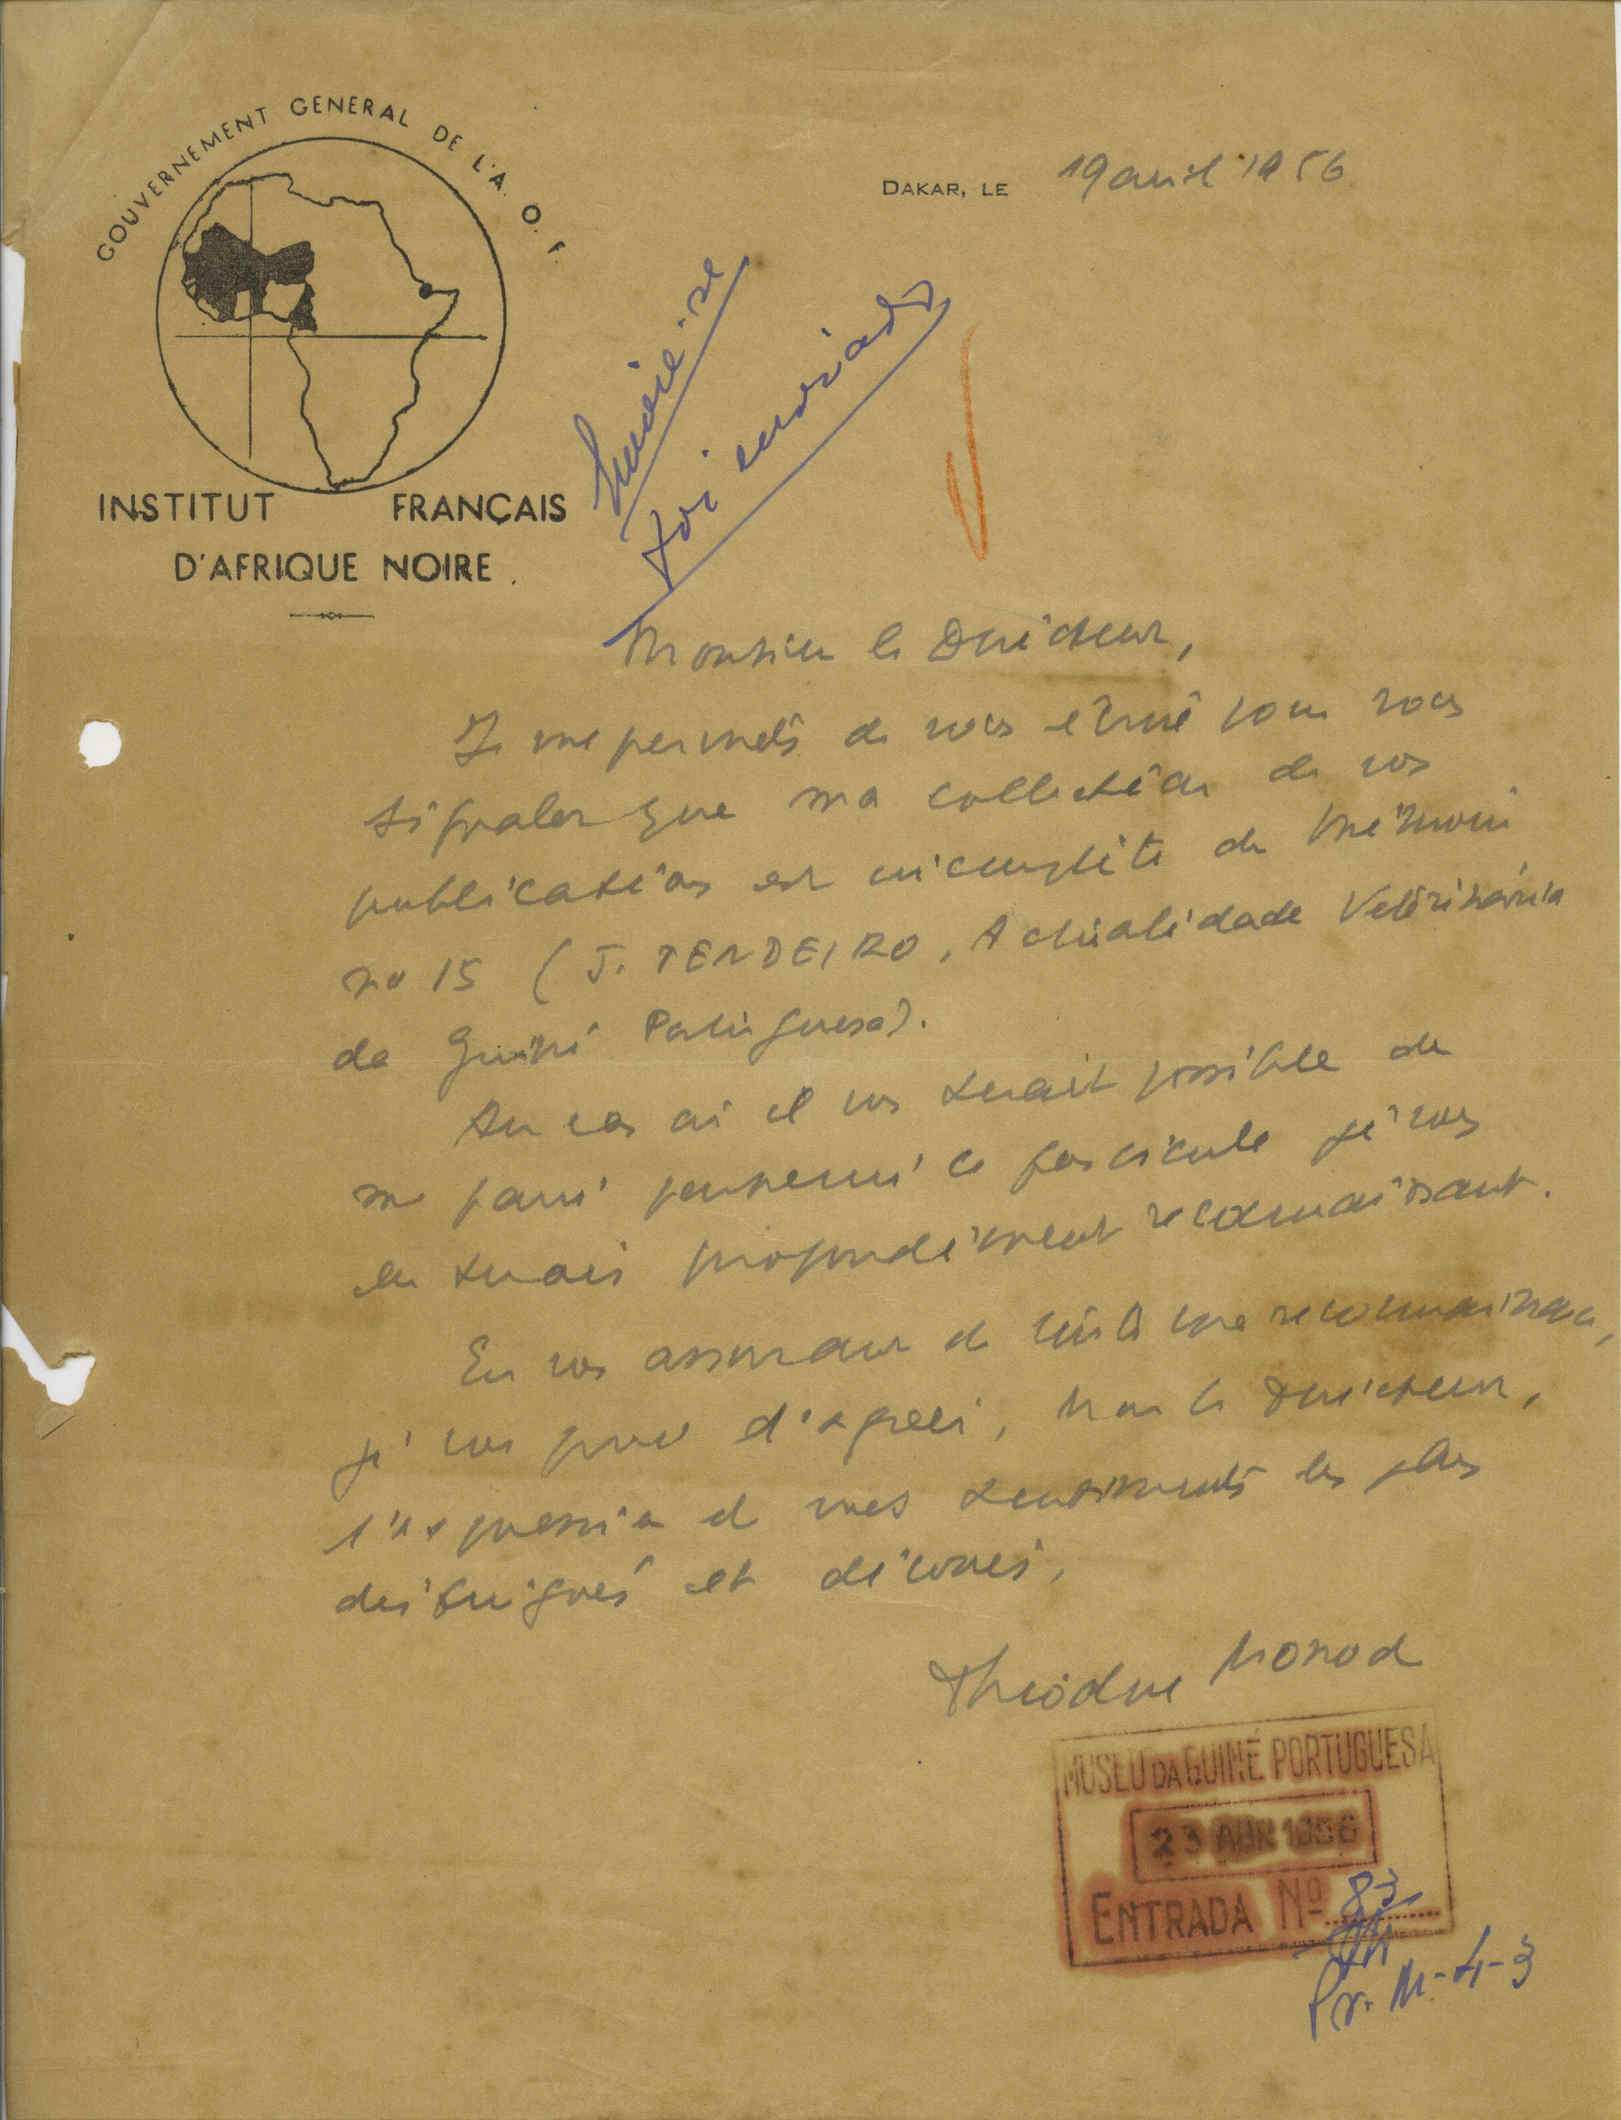 GOUVERNEMENT GENERAL DE L'A. O. F.
INSTITUT FRANÇAIS
D'AFRIQUE NOIRE
DAKAR, LE 19 avril 1956
Envie-se
Foi enviado
Monsieur le Directeur,
Je me permets de vous écrire pour vous
signaler que ma collection de vos
publications est incomplète du Mémoire
no 15 (J. TENDEIRO, Actualidade Veterinária
da Guiné Portuguesa).
Au cas où il vous serait possible de
me faire parvenir ce fascicule je vous
en serais profondément reconnaissant.
En vous assurant de toute ma reconnaissance,
je vous prie d'agréer, Mons le Directeur,
l'expression de mes sentiments les plus
distingués et dévoués.
Théodore Monod
MUSEU DA GUINÉ PORTUGUESA
23 ABR 1956
ENTRADA Nº 83
Pr. M-4-3